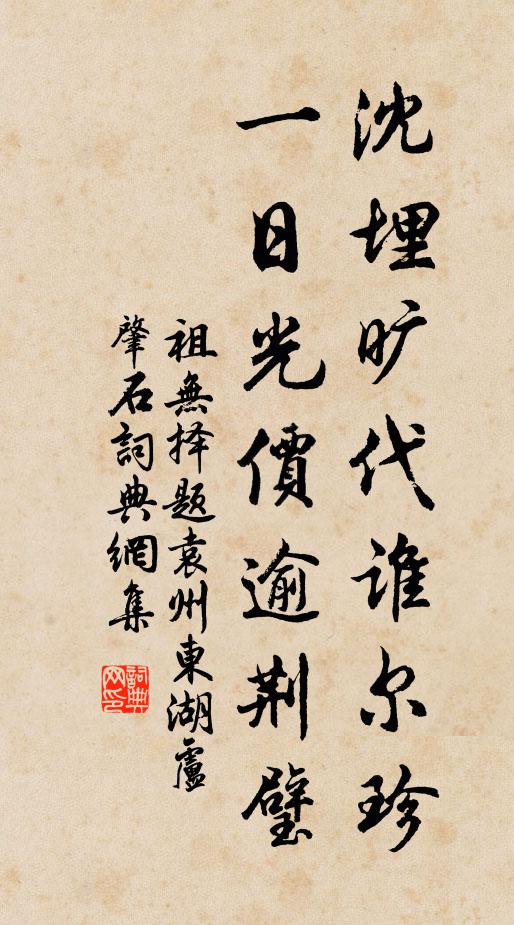 沈埋旷代谁尔珍
一日光價逾荆璧
祖無择题袁州東湖盧
肇石詞典網集
詞典网印